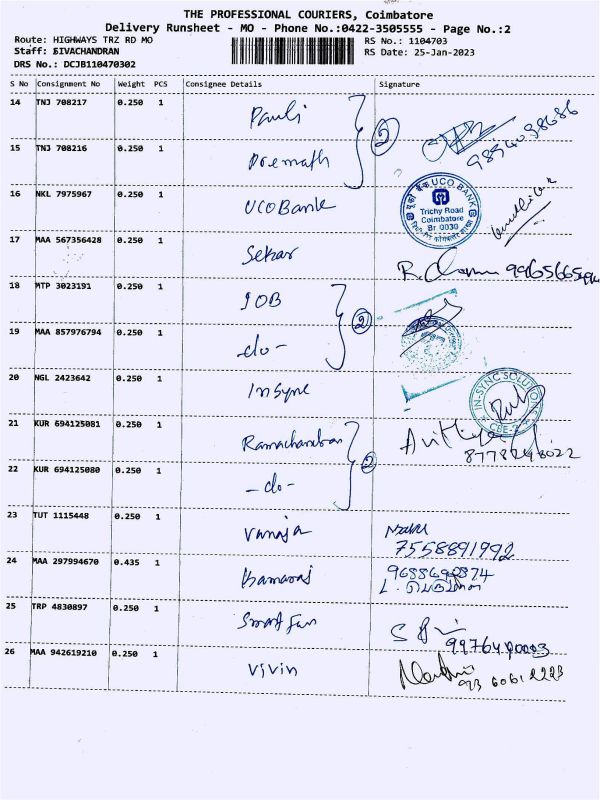 THE PROFESSIONAL COURIERS, Coimbatore
Delivery Runsheet - MO - Phone No.:0422-3505555 - Page No.:2
Route: HIGHWAYS TRZ RD MO
RS No.: 1104703
Staff: SIVACHANDRAN
RS Date: 25-Jan-2023
DRS No.: DCJB110470302
S No Consignment No Weight PCS Consignee Details Signature
14 TNJ 708217 0.250 1 Pauli
15 TNJ 708216 0.250 1 Premnath
2
9894098686
16 NKL 7975967 0.250 1 UCO Bank
UCO BANK
Trichy Road
Coimbatore
Br 0030
17 MAA 567356428 0.250 1 Sekar
18 MTP 3023191 0.250 1 IOB
19 MAA 857976794 0.250 1 -do-
2
20 NGL 2423642 0.250 1 Insync
IN-SYNC SOLUTIONS
CBE-2
21 KUR 694125081 0.250 1 Ramachandran
22 KUR 694125080 0.250 1 -do-
2
8778248022
23 TUT 1115448 0.250 1 Vanaja
7558891992
24 MAA 297994670 0.435 1 Kamaraj
25 TRP 4830897 0.250 1 Smart Fun
9976490003
26 MAA 942619210 0.250 1 Vivin
93 60612223